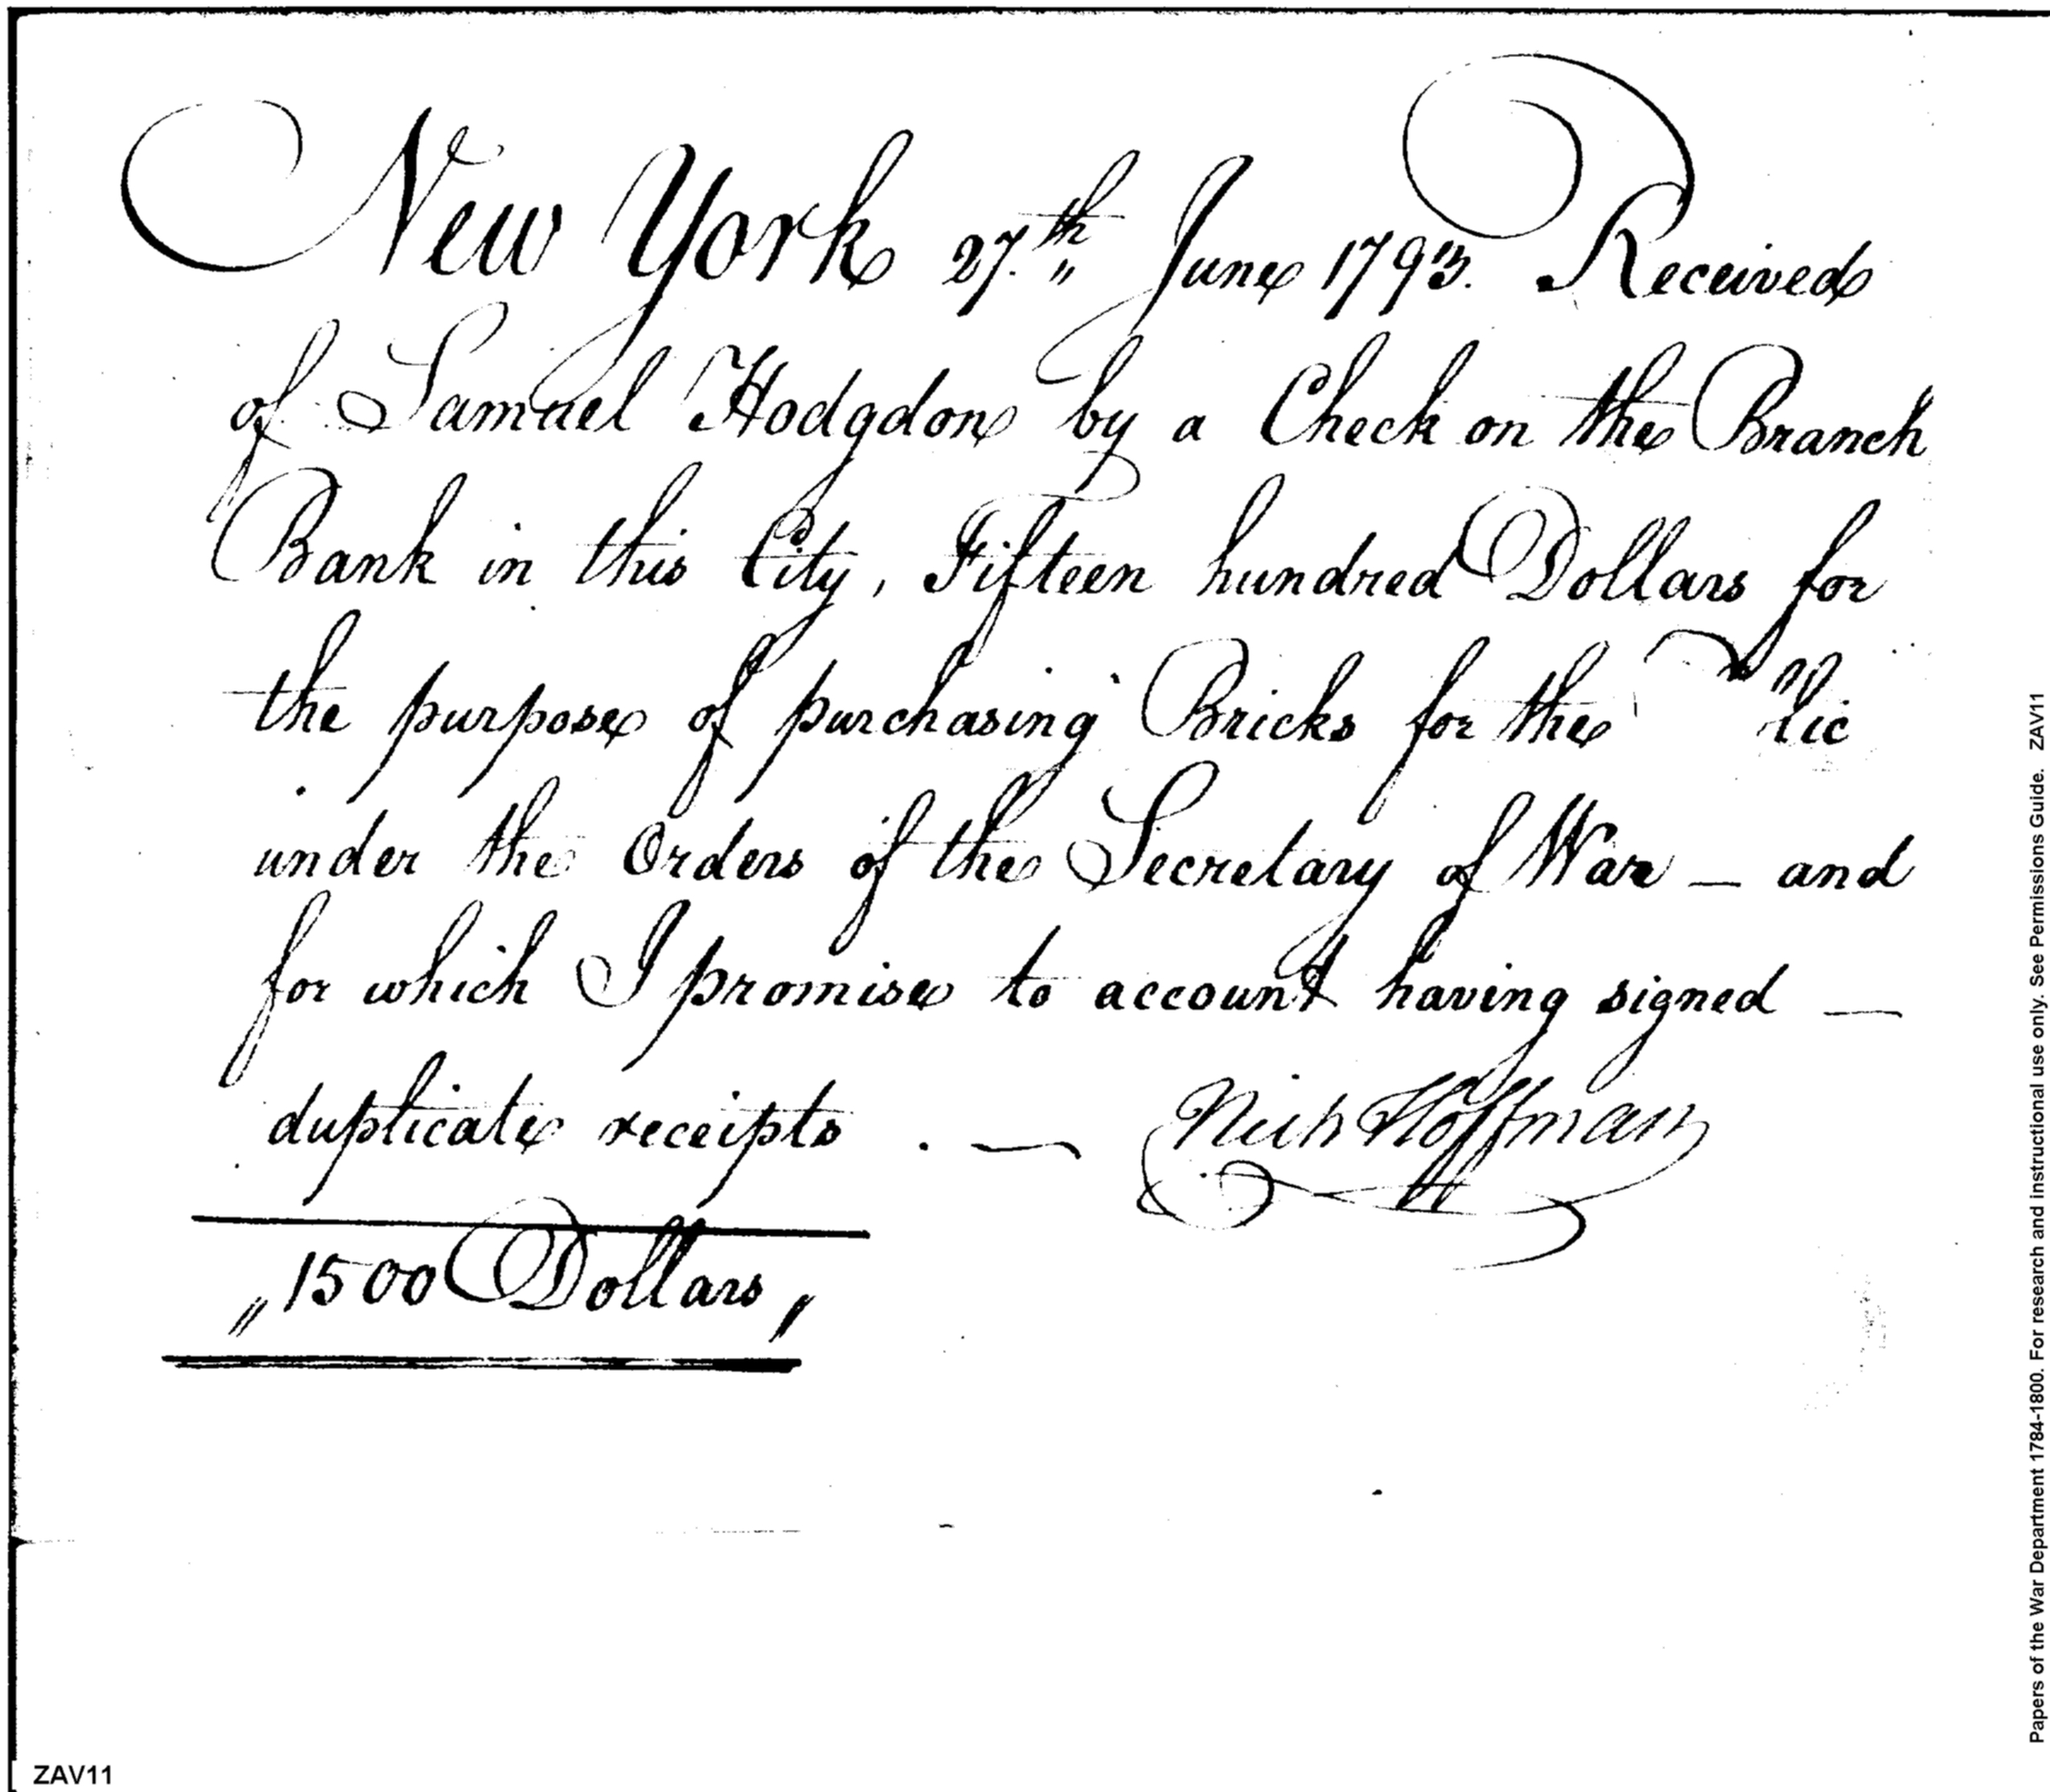 New York 27th June 1793. Received
of Samuel Hodgdon by a Check on the Branch
Bank in this City, Fifteen hundred Dollars for
the purpose of purchasing Bricks for the
under the Orders of the Secretary of War — and
for which I promise to account having signed —
duplicate receipts. — Nich Hoffman
„1500 Dollars„
ZAV11
Papers of the War Department 1784-1800. For research and instructional use only. See Permissions Guide. ZAV11